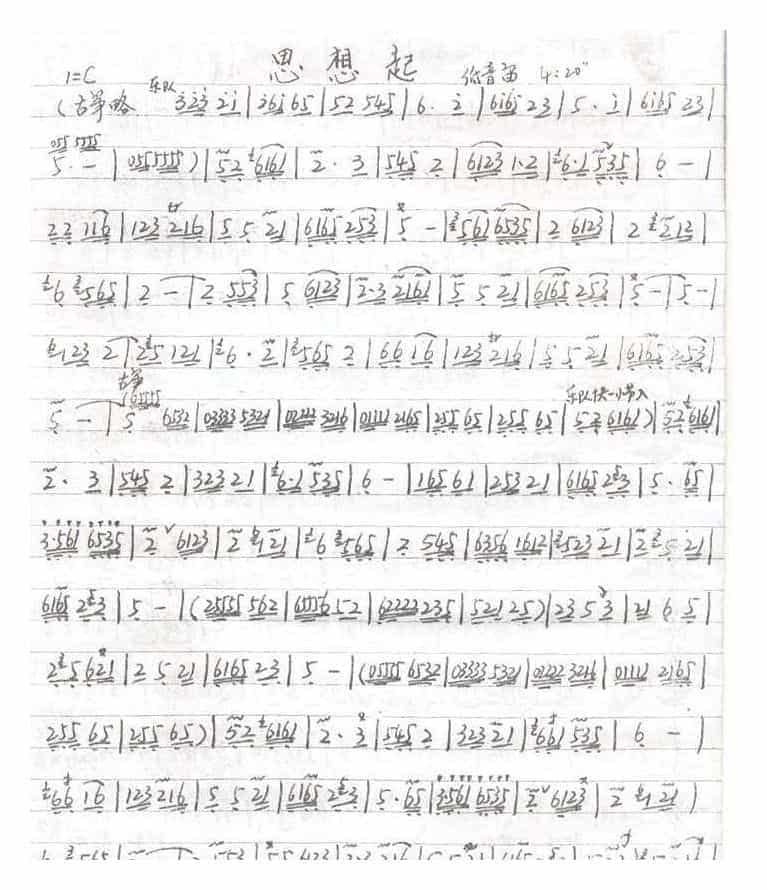 思想起
1=C 乐队 低音笛 4:20"
(古筝略 323 21 | 2616 65 | 52 545 | 6 · 2 | 6165 23 | 5 · 1 | 6165 23 |
055 5555
5 · - | 055 5555 ) | 52 6161 | 2 · 3 | 545 2 | 6123 1·2 | 6·1 535 | 6 - |
22 116 | 123 216 | 5 5 21 | 6165 253 | 5 - | 561 6535 | 2 6123 | 2 212 |
6 565 | 2 - | 2 553 | 5 6123 | 2·3 2161 | 5 5 21 | 6165 253 | 5 - | 5 - |
23 2 | 25 121 | 6 · 2 | 565 2 | 66 16 | 123 216 | 5 5 21 | 6165 253 |
古筝 乐队快一小节入
5 - | 5 6532 | 03333 5321 | 02222 3216 | 01111 2165 | 255 65 | 255 65 | 52 6161 ) | 52 6161 |
2 · 3 | 545 2 | 323 21 | 6·1 535 | 6 - | 165 61 | 253 21 | 6165 253 | 5 · 65 |
3·561 6535 | 2 6123 | 2 21 | 6 565 | 2 545 | 6356 1612 | 523 21 | 2 5 21 |
6165 253 | 5 - | (25555 562 | 65556 52 | 62222 235 | 521 25 ) | 23 5 3 | 21 6 5 |
25 621 | 2 5 21 | 6165 23 | 5 - | (05555 6532 | 03333 5321 | 02222 3216 | 01111 2165 |
255 65 | 255 65 ) | 52 6161 | 2 · 3 | 545 2 | 323 21 | 661 535 | 6 - |
66 16 | 123 216 | 5 5 21 | 6165 253 | 5 · 65 | 3·561 6535 | 2 6123 | 2 21 |